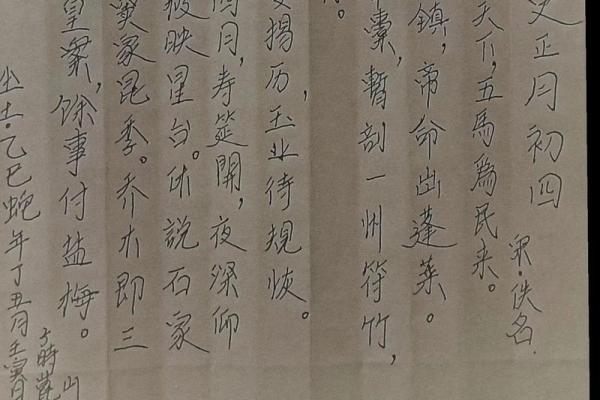 史正月初四
宋·佚名.
天下,五馬為民来。
鎮,帝命出蓬莱。
囊,暫剖一州符竹,
。
揚历,玉业待規恢。
月,寿筵開,夜深仰
映星台。休説石家
家昆季。乔木即三
皇案,馀事付盐梅。
乙巳蛇年丁丑月壬寅日
子時
山